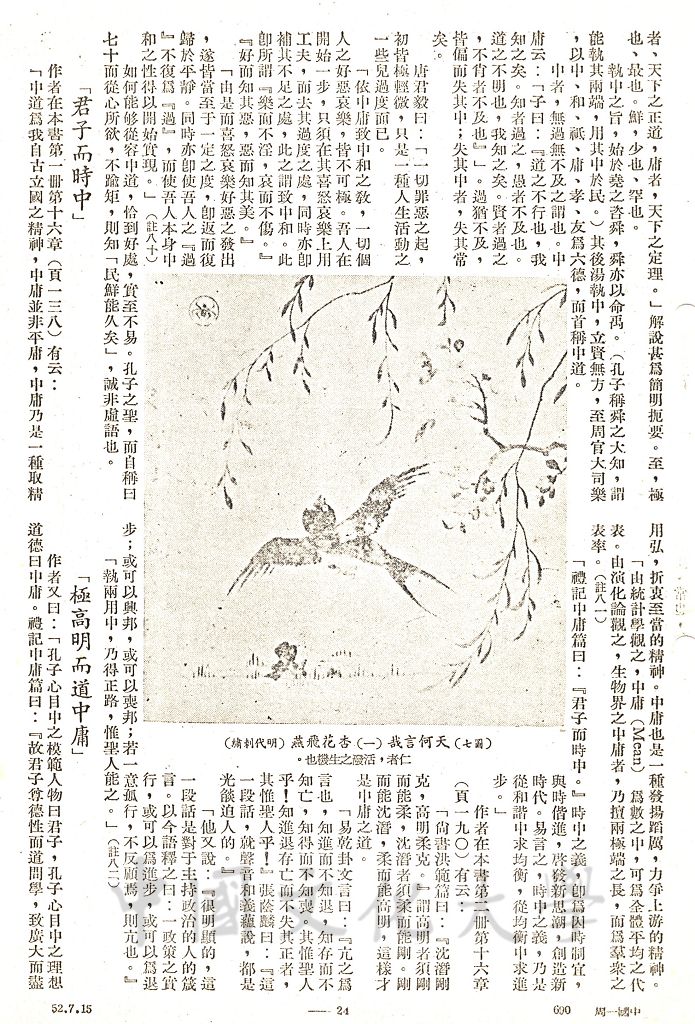 者、天下之正道,庸者,天下之定理。」解說甚爲簡明扼要。至,極
也、最也。鮮,少也、罕也。
執中之旨,始於堯之咨舜,舜亦以命禹。(孔子稱舜之大知,謂
能執其兩端,用其中於民。)其後湯執中,立賢無方,至周官大司樂
,以中、和、祇、庸、孝、友爲六德,而首稱中道。
中者,無過無不及之謂也。中
庸云:「子曰:『道之不行也,我
知之矣。知者過之,愚者不及也。
道之不明也,我知之矣。賢者過之
,不肖者不及也』」。過猶不及,
皆偏而失其中;失其中者,失其常
矣。
唐君毅曰:「一切罪惡之起,
初皆極輕微,只是一種人生活動之
一些兒過度而已。
「依中庸致中和之教,一切個
人之好惡哀樂,皆不可極。吾人在
開始一步,只須在其喜怒哀樂上用
工夫,而去其過度之處,同時亦卽
補其不足之處,此之謂致中和。此
卽所謂『樂而不淫,哀而不傷。』
『好而知其惡,惡而知其美。』
「由是而喜怒哀樂好惡之發出
,遂皆當至于一定之度,卽返而復
歸於平靜。同時亦卽使吾人之『過
『不復爲『過』,而使吾人本身中
和之性得以開始實現。」(註八十)
如何能够從容中道,恰到好處,實至不易。孔子之聖,而自稱曰
七十而從心所欲,不踰矩,則知「民鮮能久矣」,誠非虛語也。
「君子而時中」
作者在本書第一册第十六章(頁一三八)有云:
「中道爲我自古立國之精神,中庸並非平庸,中庸乃是一種取精
用弘,折衷至當的精神。中庸也是一種發揚蹈厲,力爭上游的精神。
「由統計學觀之,中庸(Mean)爲數之中,可爲全體平均之代
表。由演化論觀之,生物界之中庸者,乃擅兩極端之長,而爲羣衆之
表率。(註八一)
「禮記中庸篇曰:『君子而時中。』時中之義,卽爲因時制宜,
與時偕進,啓發新思潮,創造新
時代。易言之,時中之義,乃是
從和諧中求均衡,從均衡中求進
步。」
作者在本書第二册第十六章
(頁一九〇)有云:
「尙書洪範篇曰:『沈潛剛
克,高明柔克。』謂高明者須剛
而能柔,沈潛者須柔而能剛。剛
而能沈潛,柔而能高明,這樣才
是中庸之道。
「易乾卦文言曰:『亢之爲
言也,知進而不知退,知存而不
知亡,知得而不知喪。其惟聖人
乎!知進退存亡而不失其正者,
其惟聖人乎!』張蔭麟曰:『這
一段話,就聲音和義蘊說,都是
光燄迫人的。』
「他又說:『很明顯的,這
一段話是對于主持政治的人的箴
言。以今語釋之曰:一政策之實
行,或可以爲進步,或可以爲退
步;或可以興邦,或可以喪邦;若一意孤行,不反顧焉,則亢也。』
「執兩用中,乃得正路,惟聖人能之。」(註八二)
「極高明而道中庸」
作者又曰:「孔子心目中之模範人物曰君子,孔子心目中之理想
道德曰中庸。禮記中庸篇曰:『故君子尊德性而道問學,致廣大而盡
(圖七)天何言哉(一)杏花飛燕(明代刺繡)
仁者,活潑之生機也。
中國文化大學
52.7.15
— 24
690
中國一周